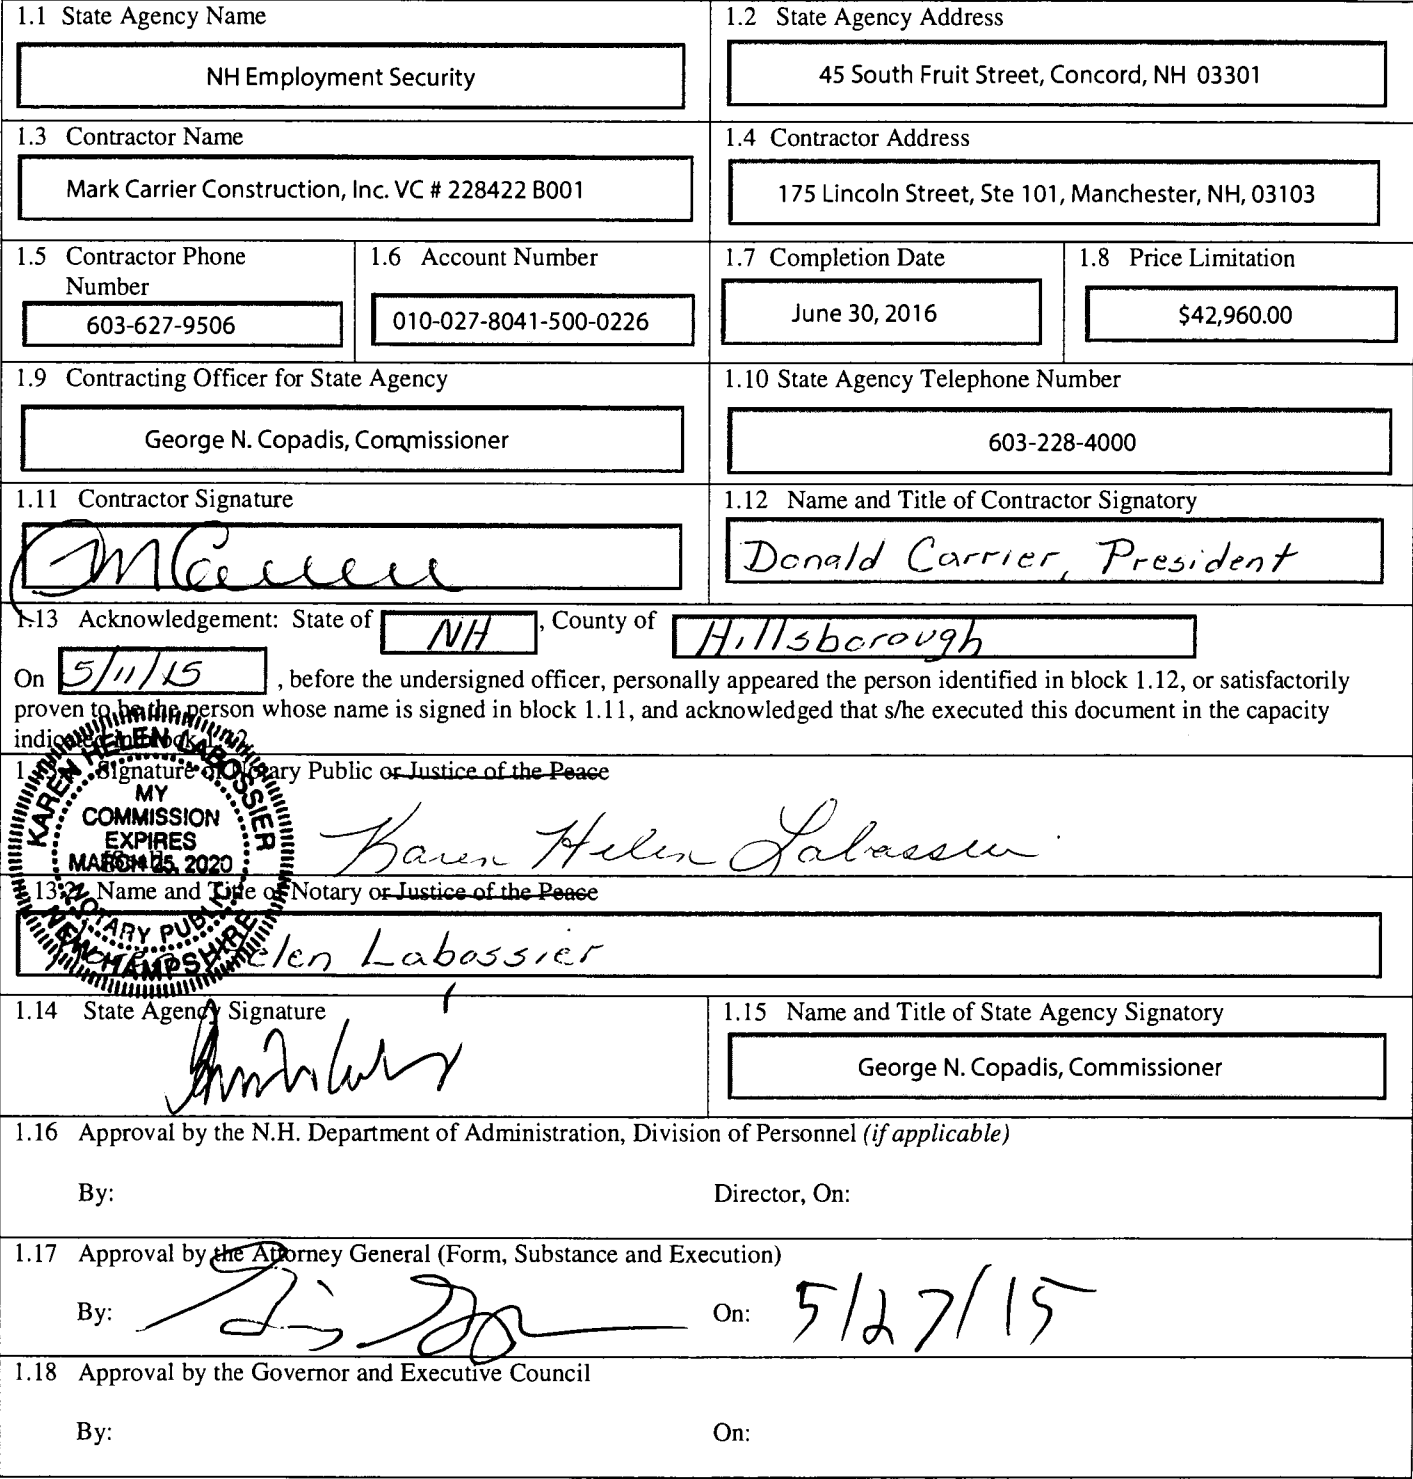 1.1 State Agency Name
NH Employment Security
1.2 State Agency Address
45 South Fruit Street, Concord, NH 03301
1.3 Contractor Name
Mark Carrier Construction, Inc. VC # 228422 B001
1.4 Contractor Address
175 Lincoln Street, Ste 101, Manchester, NH, 03103
1.5 Contractor Phone
Number
603-627-9506
1.6 Account Number
010-027-8041-500-0226
1.7 Completion Date
June 30, 2016
1.8 Price Limitation
$42,960.00
1.9 Contracting Officer for State Agency
George N. Copadis, Commissioner
1.10 State Agency Telephone Number
603-228-4000
1.11 Contractor Signature
1.12 Name and Title of Contractor Signatory
Donald Carrier, President
1.13 Acknowledgement: State of NH, County of Hillsborough
On 5/11/15, before the undersigned officer, personally appeared the person identified in block 1.12, or satisfactorily
proven to be the person whose name is signed in block 1.11, and acknowledged that s/he executed this document in the capacity
indicated in block
Signature of Notary Public or Justice of the Peace
KAREN HELEN LABOSSIER
MY
COMMISSION
EXPIRES
MARCH 25, 2020
NOTARY PUBLIC
NEW HAMPSHIRE
Karen Helen Labossier
Name and Title of Notary or Justice of the Peace
Helen Labossier
1.14 State Agency Signature
1.15 Name and Title of State Agency Signatory
George N. Copadis, Commissioner
1.16 Approval by the N.H. Department of Administration, Division of Personnel (if applicable)
By: Director, On:
1.17 Approval by the Attorney General (Form, Substance and Execution)
By: On: 5/27/15
1.18 Approval by the Governor and Executive Council
By: On: